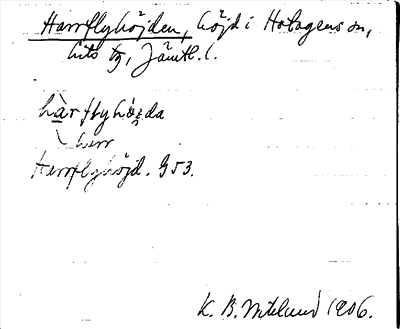 Harrflyhöjden, höjd i Hotagens sn,
Lits tg, Jämtl. l.
hàrflyhö̀ʒda
herr
Harrflyhöjd. G53.
K. B. Wiklund 1906.